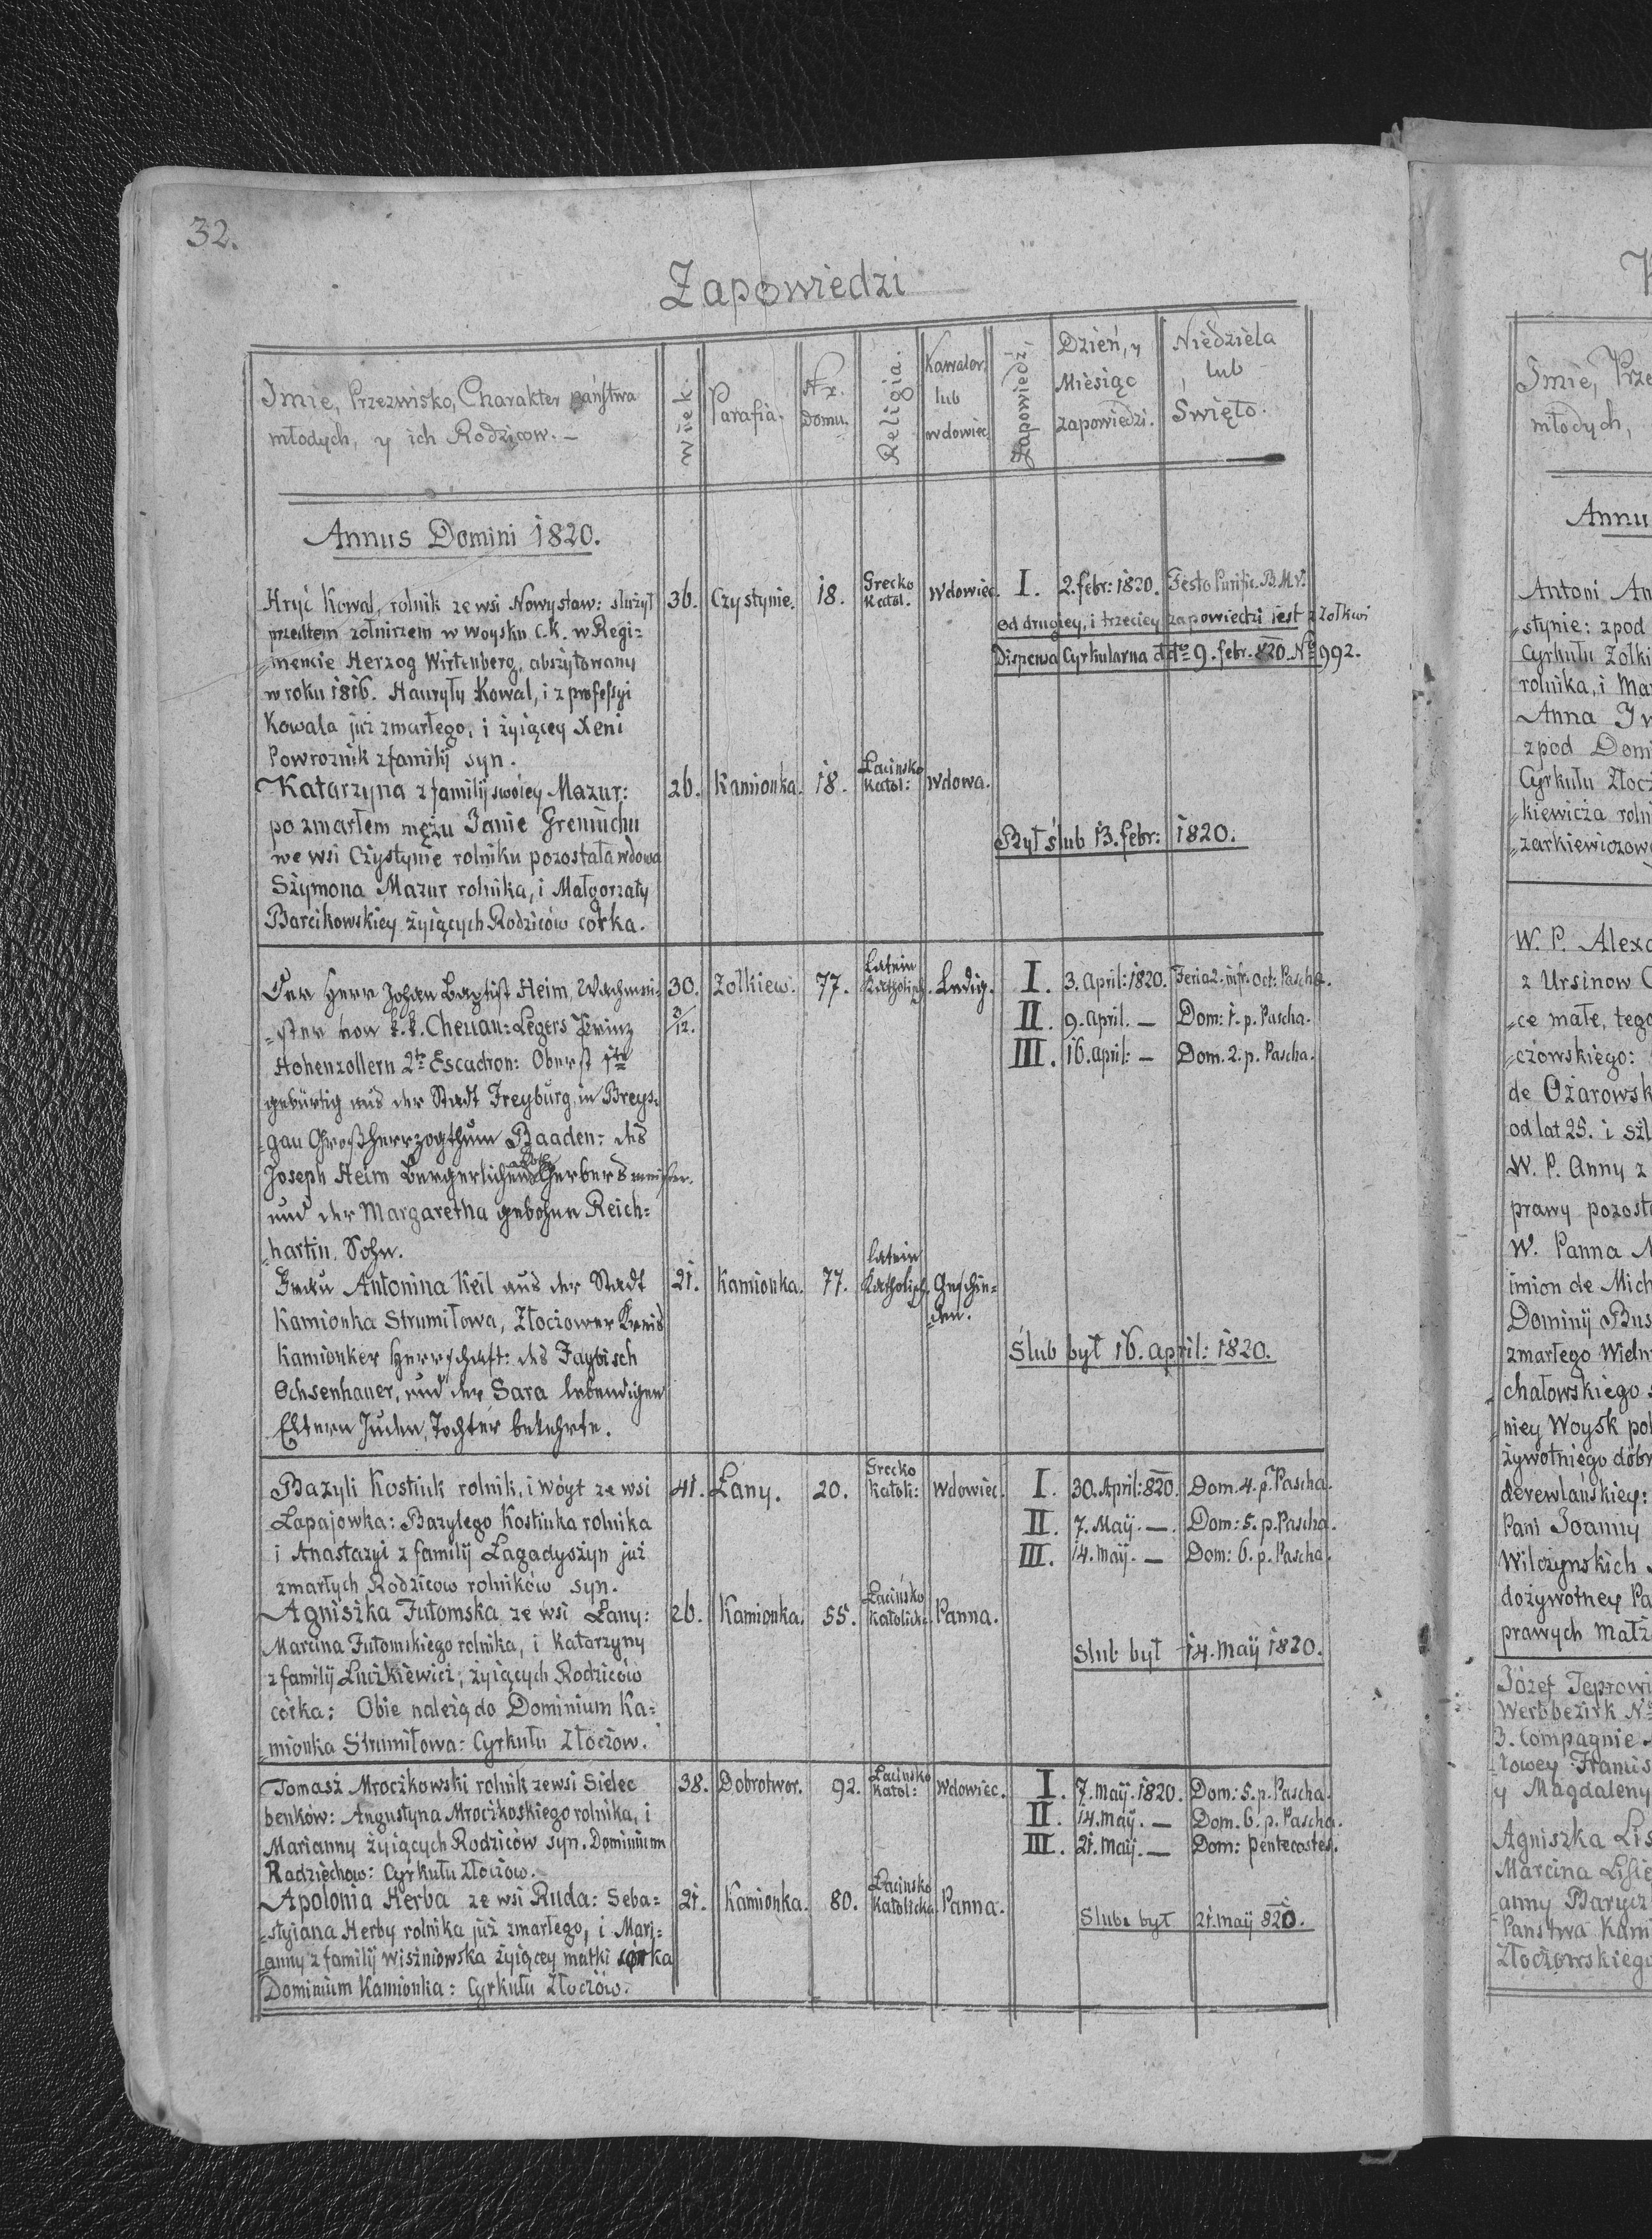 32.
Zapowiedzi
Imie, Przezwisko, Charakter państwa
młodych, y ich Rodzicow. —
Wiek.
Parafia.
Nr.
Domu.
Religia.
Kawaler,
lub
wdowiec.
Zapowiedź,
Dzień, y
Miesiąc
zapowiedzi.
Niedziela
lub
Święto.
Annus Domini 1820.
Hryć Kowal, rolnik ze wsi Nowystaw: służył
przedtem zołnirzem w woysku C.K. w Regi=
=mencie Herzog Wirtenberg, abszytowany
w roku 1816. Hauryły Kowal, i z professyi
Kowala już zmarłego, i żyiącey Xeni
Powroznik z familij syn.
36. Czystynie. 18. Grecko
Katol. Wdowiec. I. 2. febr: 1820. Festo Purific. B.M.V.
od drugiey, i trzeciey zapowiedzi iest z Zołkwi
Dispensa Cyrkularna ddto 9. febr. 820. No 992.
Katarzyna z familij swoiey Mazur:
po zmarłem mężu Janie Greniuchu
we wsi Czystynie rolniku pozostała wdowa
Szymona Mazur rolnika, i Małgorzaty
Barcikowskiey żyiących Rodziców córka.
26. Kamionka. 18. Łacinsko
Katol: Wdowa.
Był ślub 13. febr: 1820.
Der Herr Johan Baptist Heim, Wachmei=
=ster von k.k. Chevau: Legers Prinz
Hohenzollern 2te Escadron: Oberst 1te
gebürtig aus der Stadt Freyburg, in Breys=
=gau Großherzogthum Baaden: des
Joseph Heim Bürgerlichens Gerbersmeister.
und der Margaretha gebohrne Reich=
=hartin, Sohn.
30. 3/12. Zołkiew. 77. Latein
Katholisch. Ledig. I. 3. April: 1820. Feria 2. infr. oct: Pascha.
II. 9. April. — Dom: 1. p. Pascha.
III. 16. april: — Dom. 2. p. Pascha.
Frau Antonina Keil aus der Stadt
Kamionka Strumiłowa, Złoczower Kreis
Kamionker Herrschaft: des Faybisch
Ochsenhauer, und der Sara lebendigen
Eltern Juden, Tochter bekehrte.
21. Kamionka. 77. Latein
Katholisch. Geschie=
=den.
Ślub był 16. april: 1820.
Bazyli Kostiuk rolnik, i wóyt ze wsi
Łapajowka: Bazylego Kostiuka rolnika
i Anastazyi z familij Łagadyszyn już
zmarłych Rodzicow rolników syn.
41. Łany. 20. Grecko
Katoli: Wdowiec. I. 30. April: 820. Dom. 4. p. Pascha.
II. 7. Maij. — Dom: 5. p. Pascha.
III. 14. maij. — Dom: 6. p. Pascha.
Agniszka Futomska ze wsi Łany:
Marcina Futomskiego rolnika, i Katarzyny
z familij Łuczkiewici, żyiących Rodziców
córka: Obie należą do Dominium Ka=
=mionka Strumiłowa: Cyrkułu Złoczow.
26. Kamionka. 55. Łacińsko
Katolicka. Panna.
Slub był 14. maij 1820.
Tomasz Mroczkowski rolnik ze wsi Sielec
benków: Angustyna Mroczkoskiego rolnika, i
Marianny żyiących Rodziców syn. Dominium
Radziechow: Cyrkułu Złoczow.
38. Dobrotwor. 92. Łacinsko
Katol: Wdowiec. I. 7. maij. 1820. Dom: 5. p. Pascha.
II. 14. maij. — Dom. 6. p. Pascha.
III. 21. maij. — Dom: Pentecostes.
Apolonia Herba ze wsi Ruda: Seba=
=styiana Herby rolnika już zmarłego, i Mari=
=anny z familij Wiszniowska żyiącey matki córka
Dominium Kamionka: Cyrkułu Złoczów.
21. Kamionka. 80. Łacinsko
Katolicka. Panna.
Slub był 21. maij 820.
Imie, Prze
młodych,
Annu
Antoni An
=stynie: zpod
Cyrkułu Zołki
rolnika, i Ma
Anna
zpod Domi
Cyrkułu Złocz
=kiewicza rolni
=zarkiewiczow
W. P. Alexa
z Ursinow
=ce małe, tego
=czowskiego:
de Ożarowsk
od lat 25. i
W. P. Anny z
prawy pozost
W. Panna
imion de Mich
Dominij Bus
zmarłego Wielm
chałowskiego
niey Woysk pol
żywotniego dobr
derewlańskiey:
Pani Joanny
Wilczynskich
dożywotney Pa
prawych małż
Józef Teprowi
Werbbezirk No
3. Compagnie
towey Framis
y Magdaleny
Agniszka Lis
Marcina Lisie
anny Barycz
Panstwa Kami
Złoczowskiego